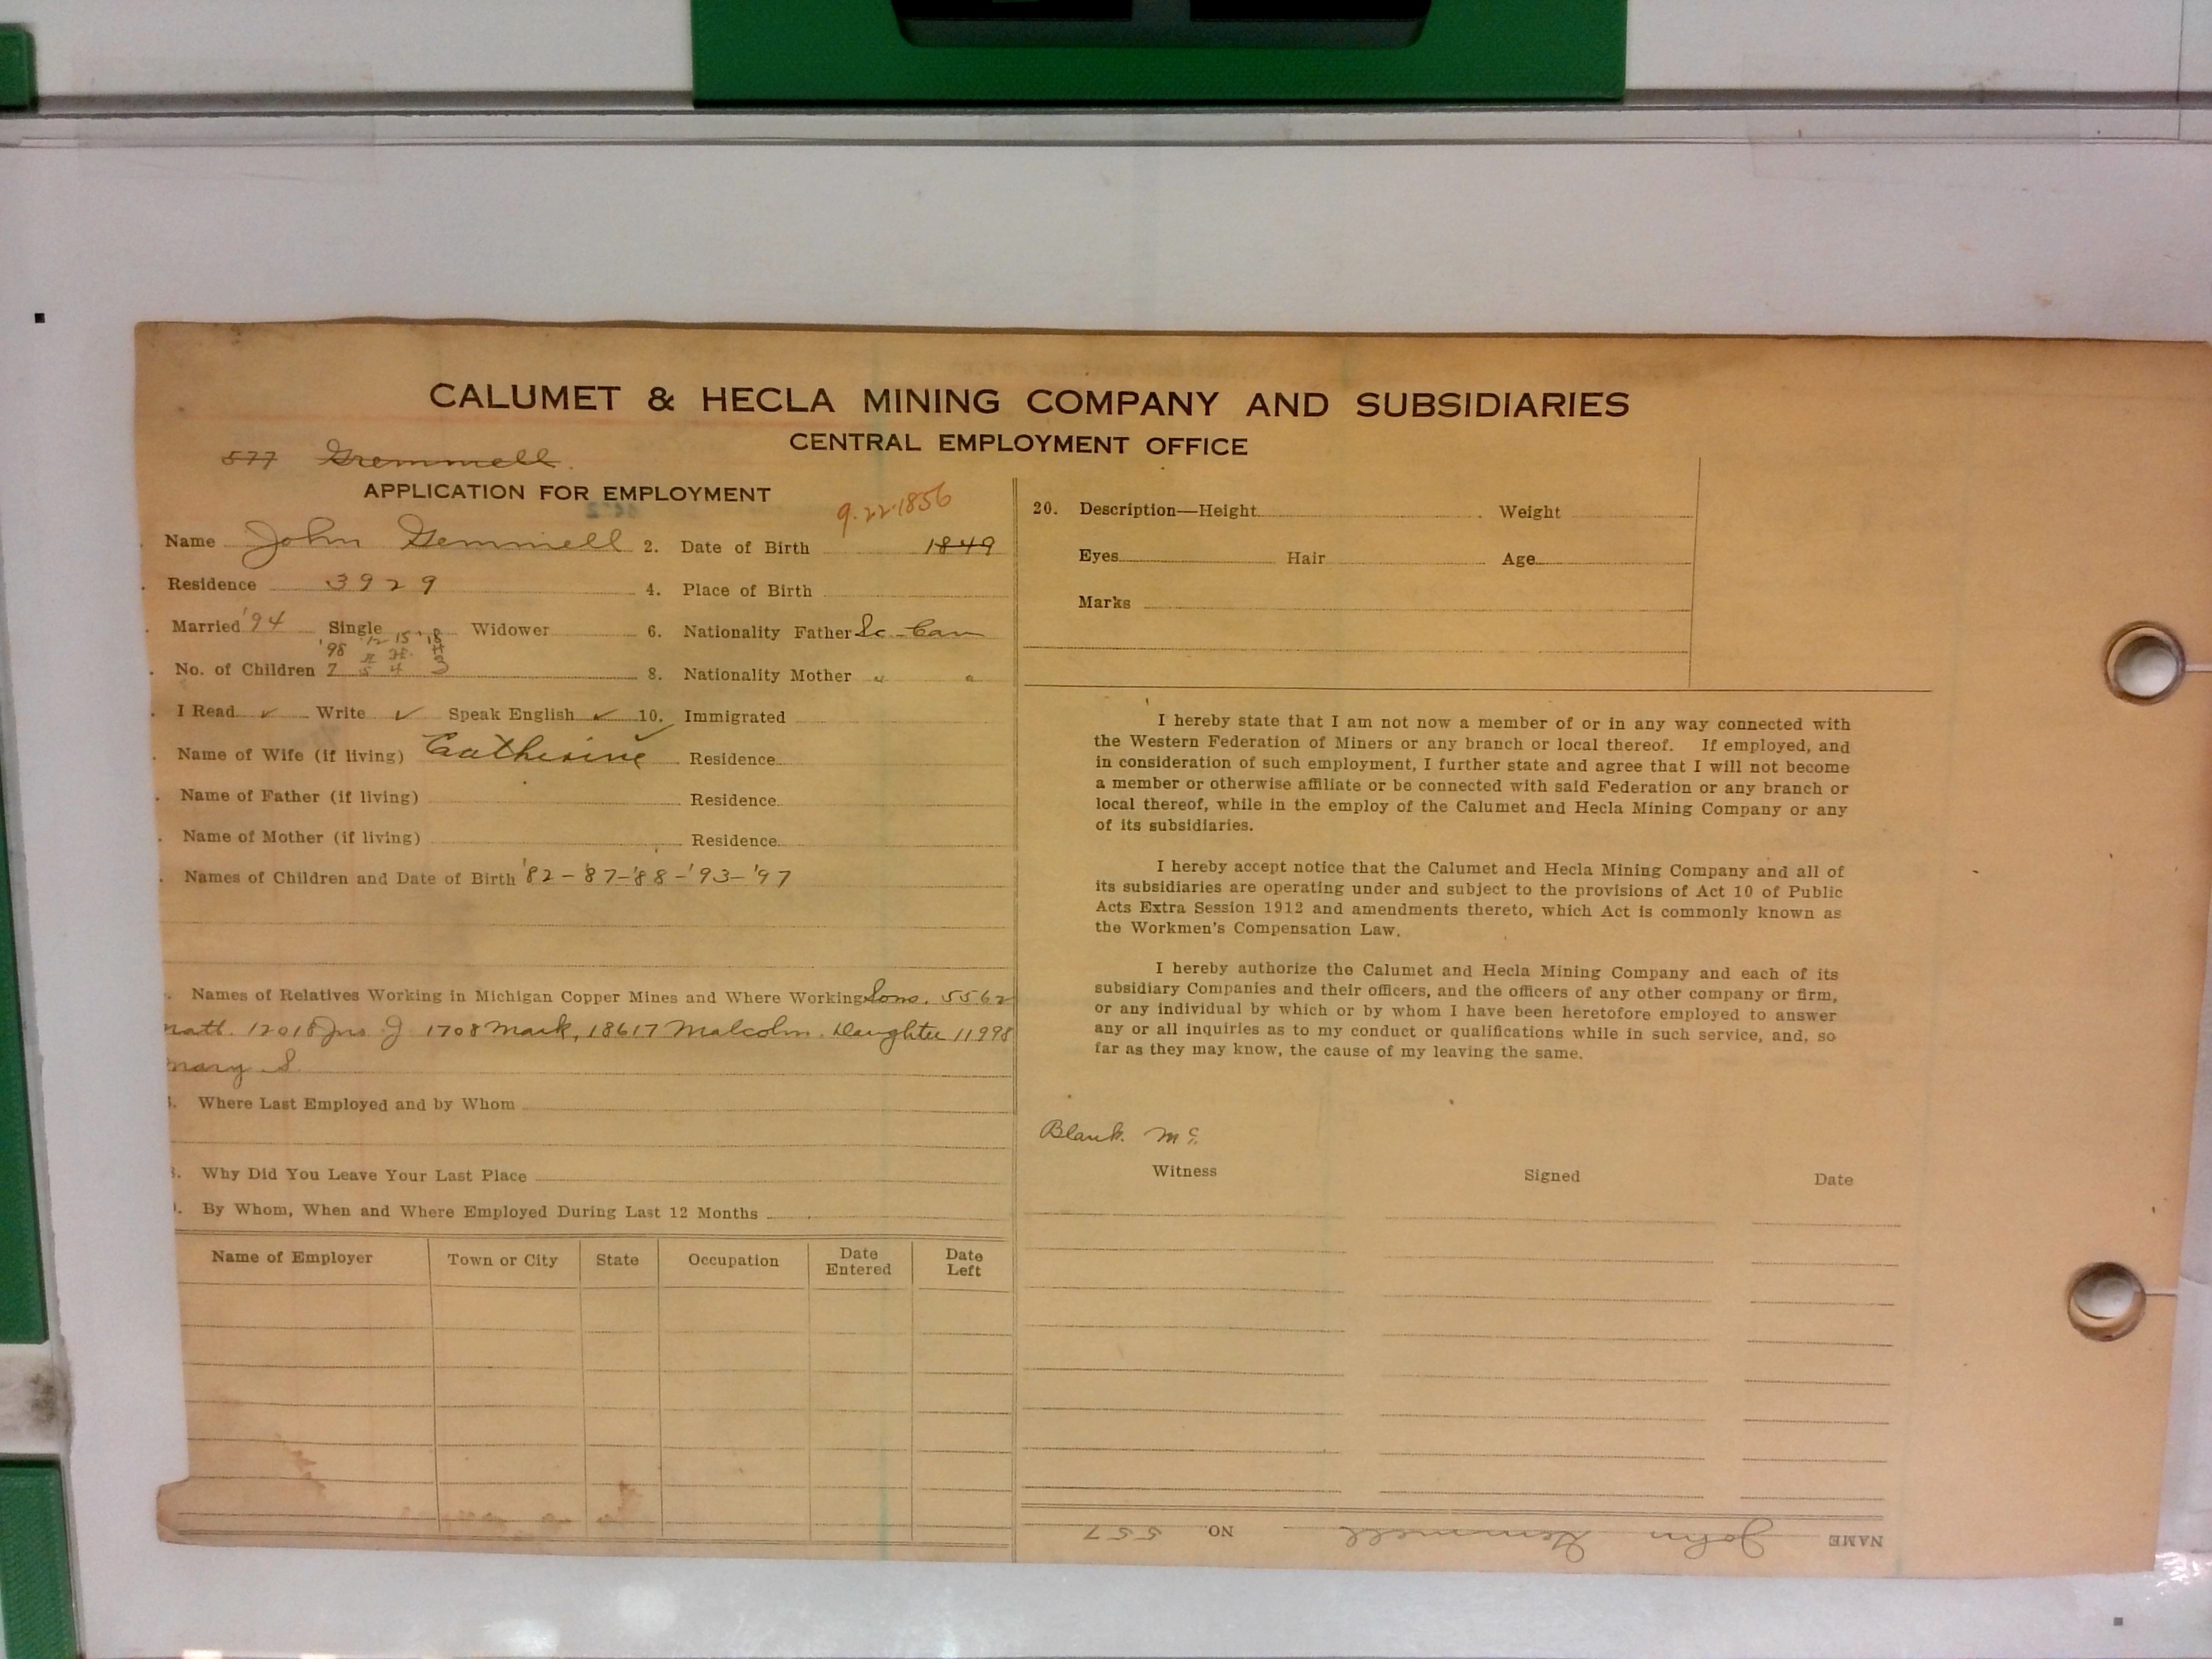 CALUMET & HECLA MINING COMPANY AND SUBSIDIARIES
CENTRAL EMPLOYMENT OFFICE
577 Gremmell.
APPLICATION FOR EMPLOYMENT
9.22.1856
Name John Gemmell 2. Date of Birth 1849
Residence 3929 4. Place of Birth
Married '94 Single Widower 6. Nationality Father Sc - Can
'98 12 15 '18
No. of Children 7 5 4 3 8. Nationality Mother " "
I Read ✓ Write ✓ Speak English ✓ 10. Immigrated
Name of Wife (if living) Catherine Residence
Name of Father (if living) Residence
Name of Mother (if living) Residence
Names of Children and Date of Birth '82 - '87 - '88 - '93 - '97
Names of Relatives Working in Michigan Copper Mines and Where Working Sons. 5562
Matt. 12018 Jno J 1708 Mark, 18617 Malcolm. Daughter 11998
Mary S.
Where Last Employed and by Whom
Why Did You Leave Your Last Place
By Whom, When and Where Employed During Last 12 Months
Name of Employer Town or City State Occupation Date Entered Date Left
20. Description—Height Weight
Eyes Hair Age
Marks
I hereby state that I am not now a member of or in any way connected with
the Western Federation of Miners or any branch or local thereof. If employed, and
in consideration of such employment, I further state and agree that I will not become
a member or otherwise affiliate or be connected with said Federation or any branch or
local thereof, while in the employ of the Calumet and Hecla Mining Company or any
of its subsidiaries.
I hereby accept notice that the Calumet and Hecla Mining Company and all of
its subsidiaries are operating under and subject to the provisions of Act 10 of Public
Acts Extra Session 1912 and amendments thereto, which Act is commonly known as
the Workmen's Compensation Law.
I hereby authorize the Calumet and Hecla Mining Company and each of its
subsidiary Companies and their officers, and the officers of any other company or firm,
or any individual by which or by whom I have been heretofore employed to answer
any or all inquiries as to my conduct or qualifications while in such service, and, so
far as they may know, the cause of my leaving the same.
Blank. Mc
Witness Signed Date
NAME John Gemmell NO. 557